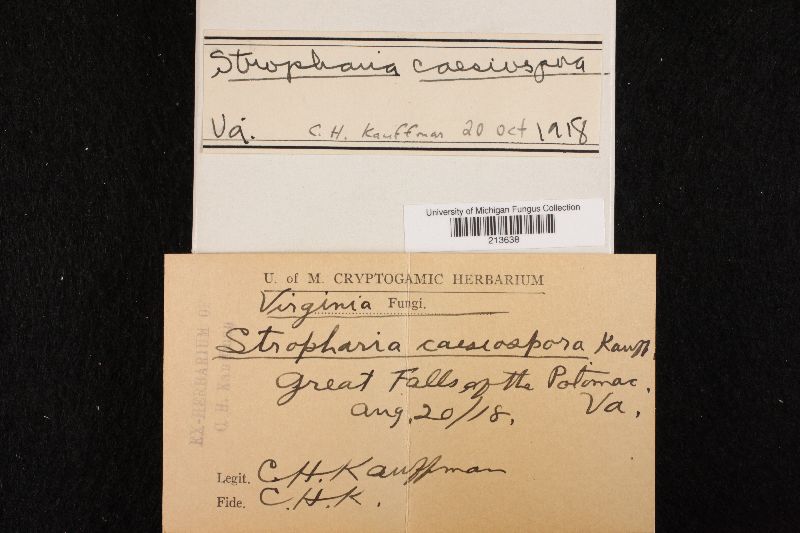 Stropharia caesiospora
Va. C. H. Kauffman 20 Oct 1918
University of Michigan Fungus Collection
213638
U. of M. CRYPTOGAMIC HERBARIUM
Virginia Fungi.
Stropharia caesiospora Kauff.
Great Falls of the Potomac,
Aug. 20/18. Va.
Legit. C.H. Kauffman
Fide. C.H.K.
EX-HERBARIUM OF
C. H. Kauffman